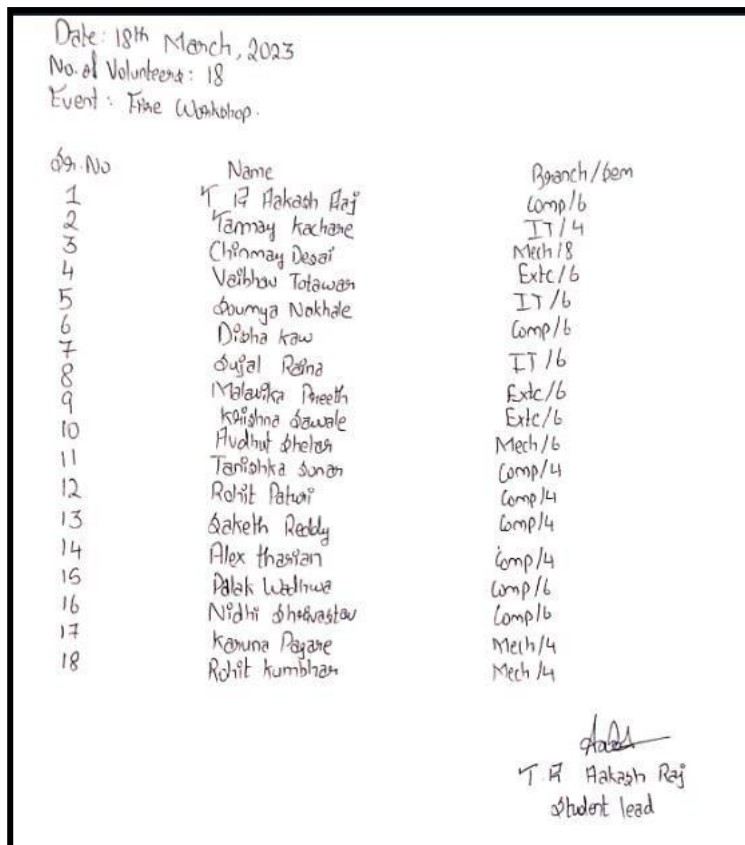 Date: 18th March, 2023
No. of Volunteers: 18
Event: Fire Workshop.
Sr. No Name Branch/Sem
1 T R Aakash Raj Comp/6
2 Tanmay Kachare IT/4
3 Chinmay Desai Mech/8
4 Vaibhav Totawar Extc/6
5 Soumya Nokhale IT/6
6 Disha Kaw Comp/6
7 Sujal Raina IT/6
8 Malavika Preeth Extc/6
9 Krishna Sawale Extc/6
10 Audhut Shelar Mech/6
11 Tanishka Sunar Comp/4
12 Rohit Paturi Comp/4
13 Saketh Reddy Comp/4
14 Alex tharian Comp/4
15 Palak Wadhwa Comp/6
16 Nidhi Shrivastav Comp/6
17 Karuna Pagare Mech/4
18 Rohit Kumbhar Mech/4
T. R Aakash Raj
Student lead